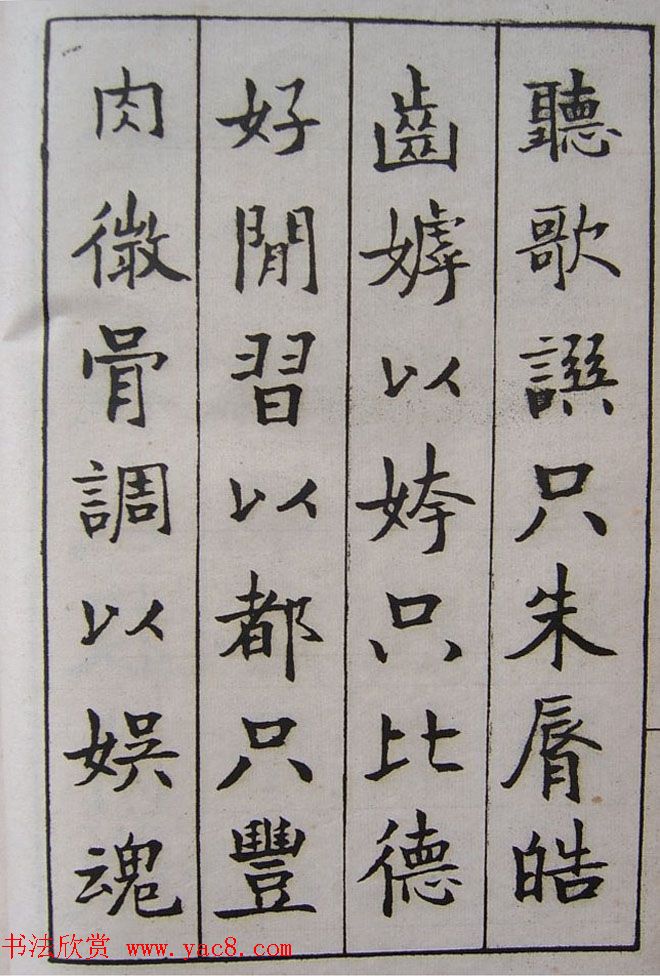 聽歌譔只朱脣皓
齒嫭以姱只比德
好閒習以都只豐
肉微骨調以娛魂
书法欣赏 www.yac8.com